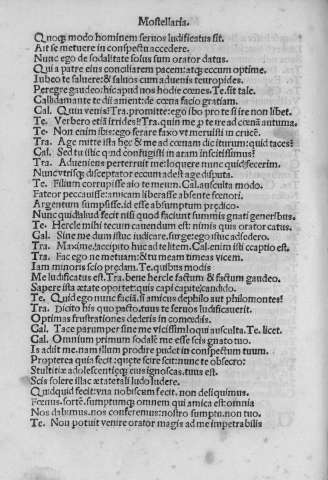 Mostellaria.
Quoqz modo hominem seruos ludificatus sit.
Ait se metuere in conspectu accedere.
Nunc ego de sodalitate solus sum orator datus.
Qui a patre eius conciliarem pacem: atqz eccum optime.
Iubeo te saluere: & saluos cum aduenis teuropides.
Peregre gaudeo: hic apud nos hodie cœnes. Te. sit tale.
Callidamante te dii ament: de cœna facio gratiam.
Cal. Quin venis? Tra. promitte: ego ibo pro te si ire non libet.
Te Verbero etiā irrides? Tra. quin me p te ire ad cœnā autuma.
Te Non enim ibis: ego ferare faxo vt meruisti in crucē.
Tra. Age mitte ista hęc & me ad cœnam dic iturum: quid taces?
Cal. Sed tu istic qnd confugisti in aram inscitissimus?
Tra. Adueniens perterruit me: loquere nunc quid fecerim.
Nunc vtrisqz disceptator eccum adest age disputa.
Te. Filium corrupisse aio te meum. Cal. ausculta modo.
Fateor peccauisse: amicam liberasse absente
Argentum sumpsisse. id esse absumptum prædico.
Nunc quid aliud fecit nisi quod faciunt summis gnati generibus.
Te Hercle mihi tecum cauendum est: nimis quis orator catus.
Cal. Sine me dum istuc iudicare. surge: ego istuc adsedero.
Tra. Maxime. accipito huc ad te litem. Cal. enim isti captio est.
Tra. Fac ego ne metuam: & tu meam timeas vicem.
Iam minoris facio prædam. Te. quibus modis
Me ludificatus est. Tra. bene hercle factum & factum gaudeo.
Sapere ista ætate oportet: quis capiti cande.
Te. Quid ego nunc faciā. si amicus dephilo aut philomontes!
Tra. Dicito his quo pacto. tuus te seruos ludificauerit.
Optimas frustrationes dederis in comœdiis.
Cal. Tace parumper sine me vicissim loqui ausculta. Te. licet.
Cal. Omnium primum sodalē me esse scis gnato tuo.
Is adiit me. nam illum prodire pudet in conspectum tuum.
Propterea quia fecit: quęte scire scit: nunc te obsecro:
Stultitiæ adolescentięqz eius ignoscas. tuus est.
Scis solere illac ætate tali ludo ludere.
Quidquid fecit: vna nobiscum fecit. nos deliquimus.
Fœnus. sortē. sumptumqz omnem qui amica est: omnia
Nos dabimus. nos conferemus: nostro sumptu. non tuo.
Te. Non potuit venire orator magis ad me impetrabilis